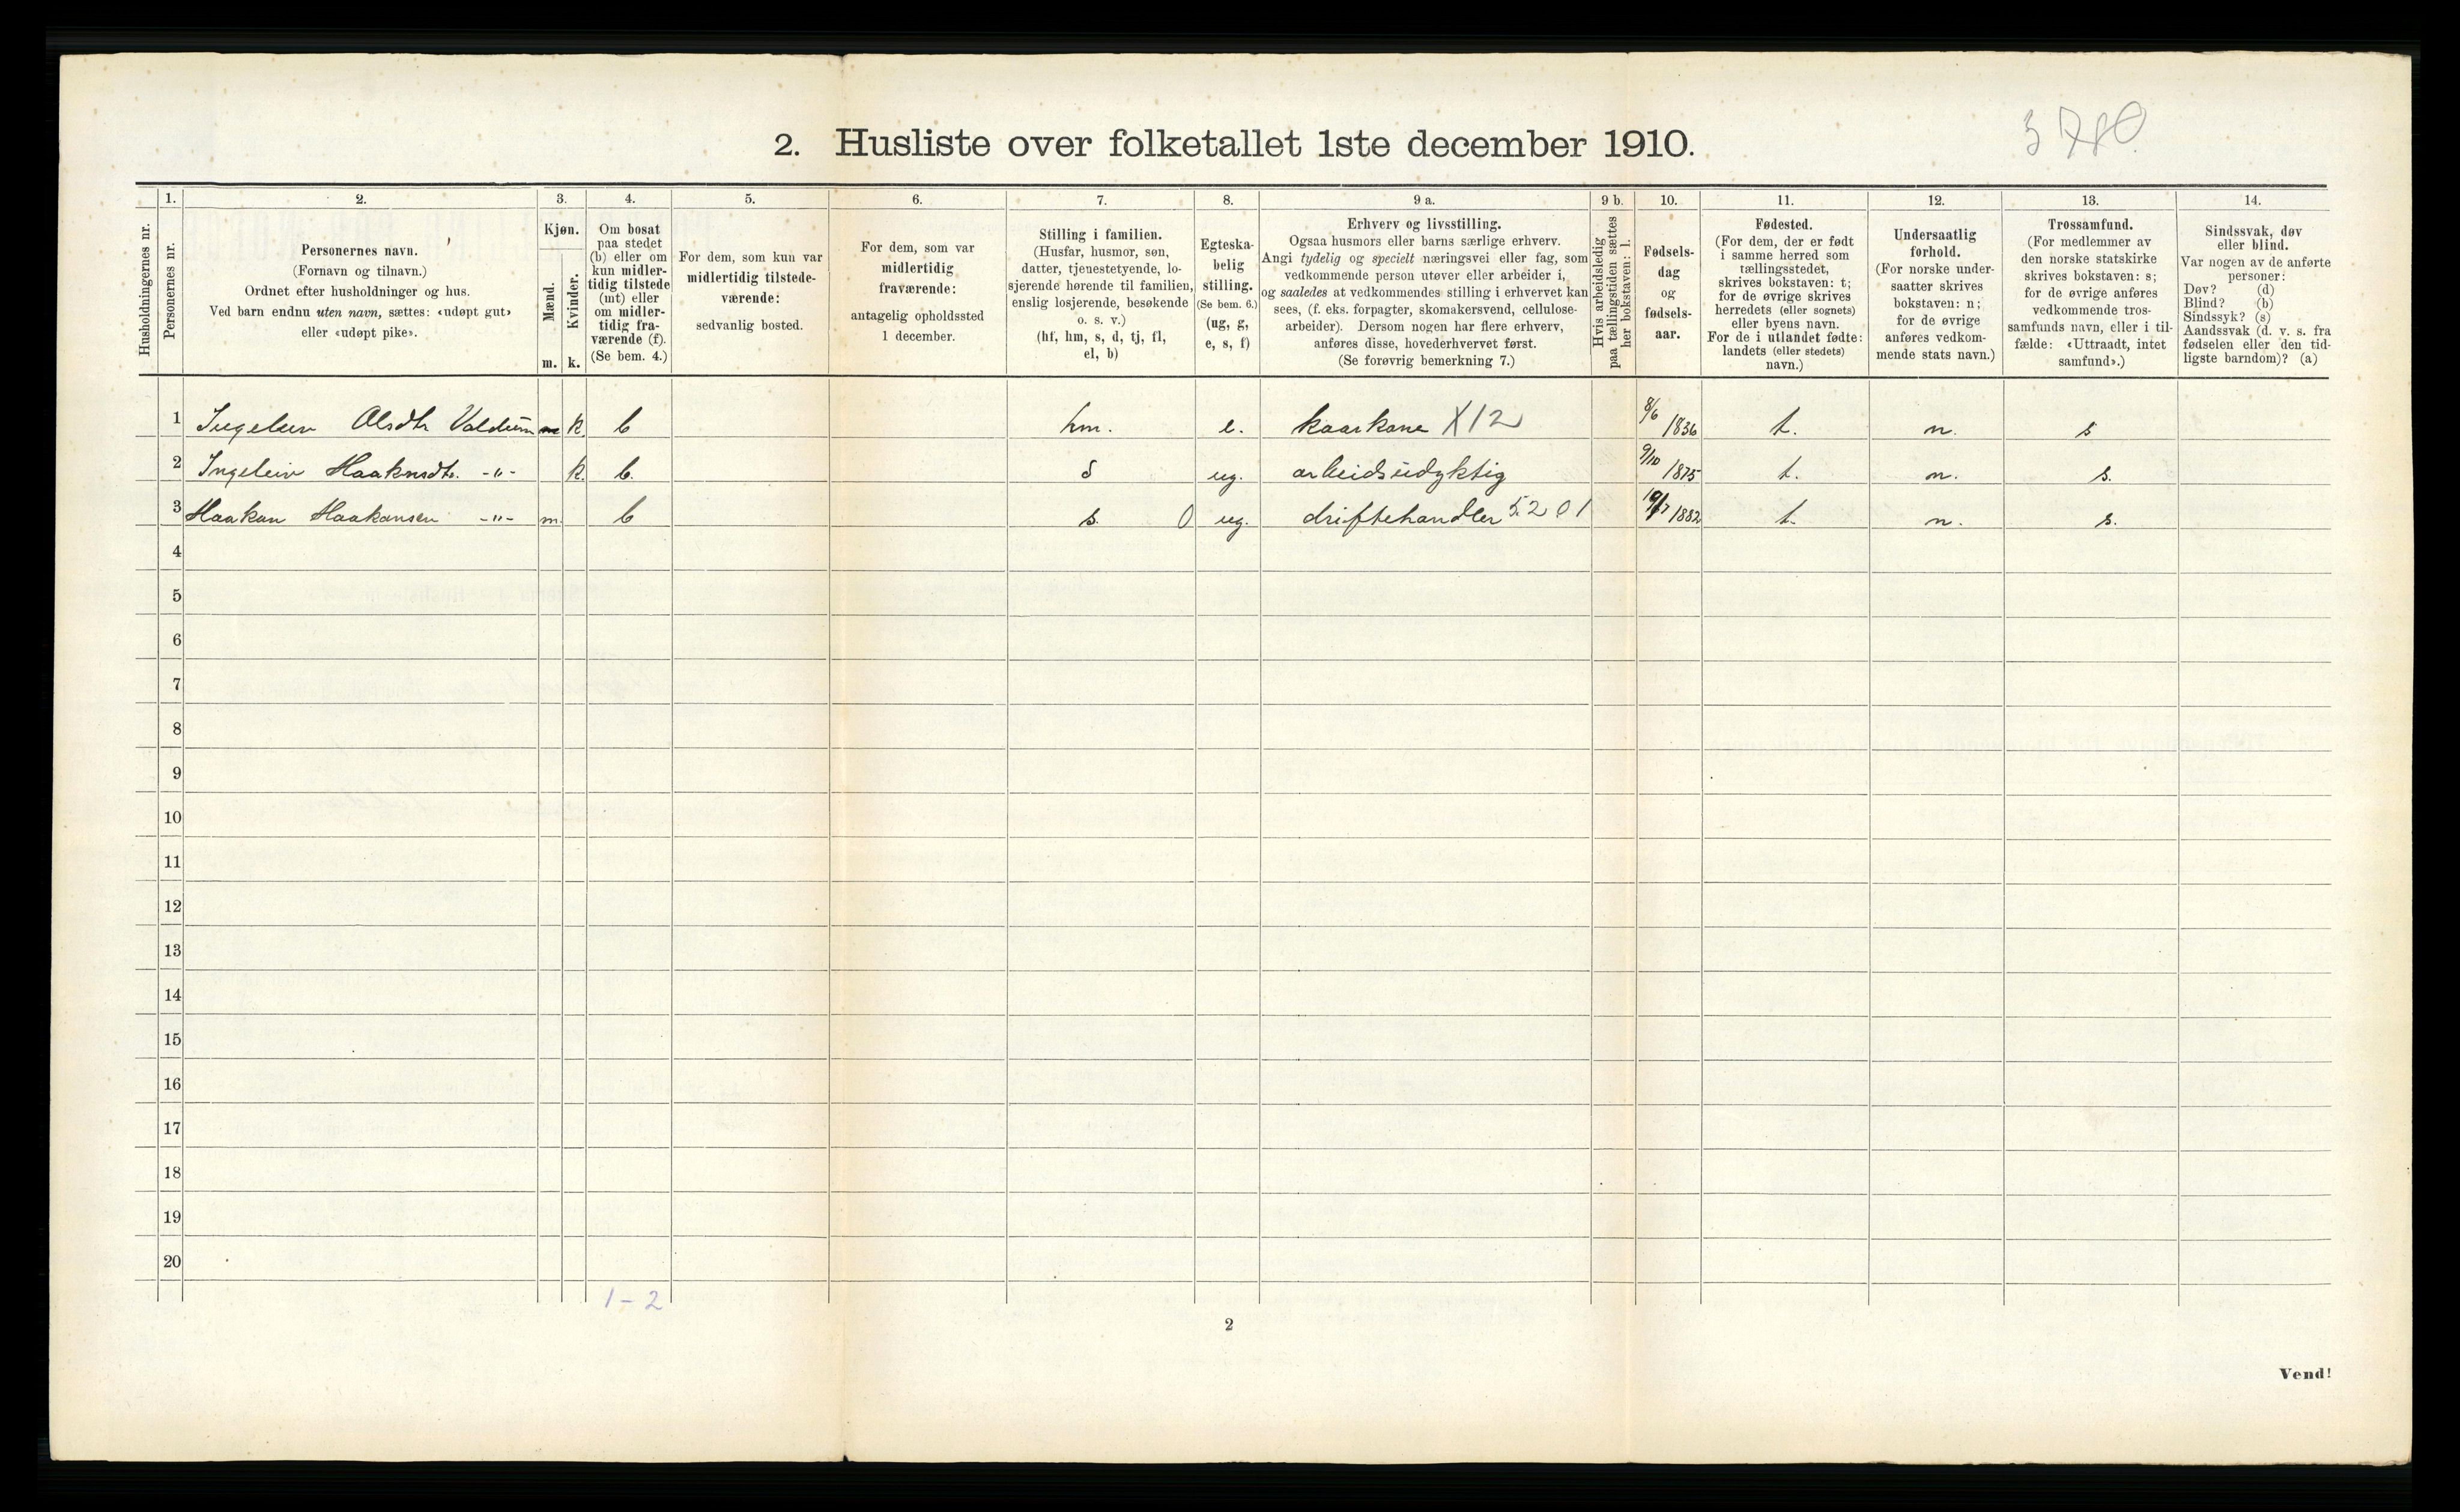 3780
2. Husliste over folketallet 1ste december 1910.
Husholdningernes nr.
1. Personernes nr.
2. Personernes navn. (Fornavn og tilnavn.) Ordnet efter husholdninger og hus. Ved barn endnu uten navn, sættes: «udøpt gut» eller «udøpt pike».
3. Kjøn. Mænd. m. Kvinder. k.
4. Om bosat paa stedet (b) eller om kun midler-tidig tilstede (mt) eller om midler-tidig fra-værende (f). (Se bem. 4.)
5. For dem, som kun var midlertidig tilstede-værende: sedvanlig bosted.
6. For dem, som var midlertidig fraværende: antagelig opholdssted 1 december.
7. Stilling i familien. (Husfar, husmor, søn, datter, tjenestetyende, lo-sjerende hørende til familien, enslig losjerende, besøkende o. s. v.) (hf, hm, s, d, tj, fl, el, b)
8. Egteska-belig stilling. (Se bem. 6.) (ug, g, e, s, f)
9 a. Erhverv og livsstilling. Ogsaa husmors eller barns særlige erhverv. Angi tydelig og specielt næringsvei eller fag, som vedkommende person utøver eller arbeider i, og saaledes at vedkommendes stilling i erhvervet kan sees, (f. eks. forpagter, skomakersvend, cellulose-arbeider). Dersom nogen har flere erhverv, anføres disse, hovederhvervet først. (Se forøvrig bemerkning 7.)
9 b. Hvis arbeidsledig paa tællingstiden sættes her bokstaven: l.
10. Fødsels-dag og fødsels-aar.
11. Fødested. (For dem, der er født i samme herred som tællingsstedet, skrives bokstaven: t; for de øvrige skrives herredets (eller sognets) eller byens navn. For de i utlandet fødte: landets (eller stedets) navn.)
12. Undersaatlig forhold. (For norske under-saatter skrives bokstaven: n; for de øvrige anføres vedkom-mende stats navn.)
13. Trossamfund. (For medlemmer av den norske statskirke skrives bokstaven: s; for de øvrige anføres vedkommende tros-samfunds navn, eller i til-fælde: «Uttraadt, intet samfund».)
14. Sindssvak, døv eller blind. Var nogen av de anførte personer: Døv? (d) Blind? (b) Sindssyk? (s) Aandssvak (d. v. s. fra fødselen eller den tid-ligste barndom)? (a)
1 Ingeleiv Olsdtr Valdum k. b hm. e. kaarkone X12 8/6 1836 t. n. s
2 Ingeleiv Haakonsdtr. -"- k. b. d ug. arbeidsudyktig 9/10 1875 t. n. s.
3 Haakon Haakonsen -"- m. b s. 0 ug. driftehandler 5201 1882 t. n. s.
4
5
6
7
8
9
10
11
12
13
14
15
16
17
18
19
20
1 - 2
2
Vend!